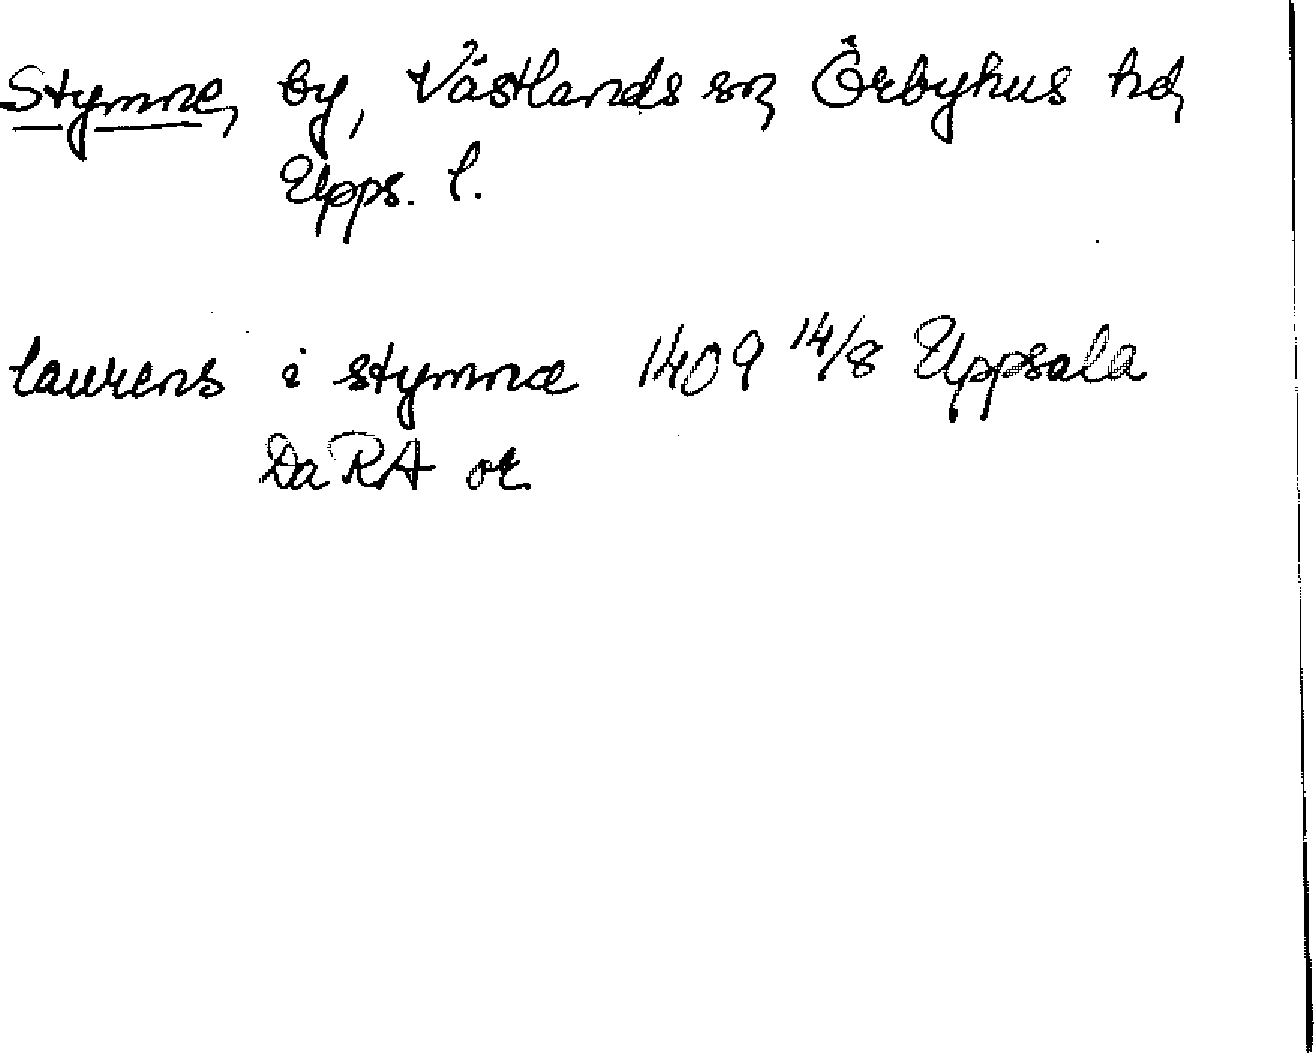 Stymne, by, Västlands sn, Örbyhus hd,
Upps. l.
laurens i stymnæ 1409 14/8 Uppsala
Da RA or.